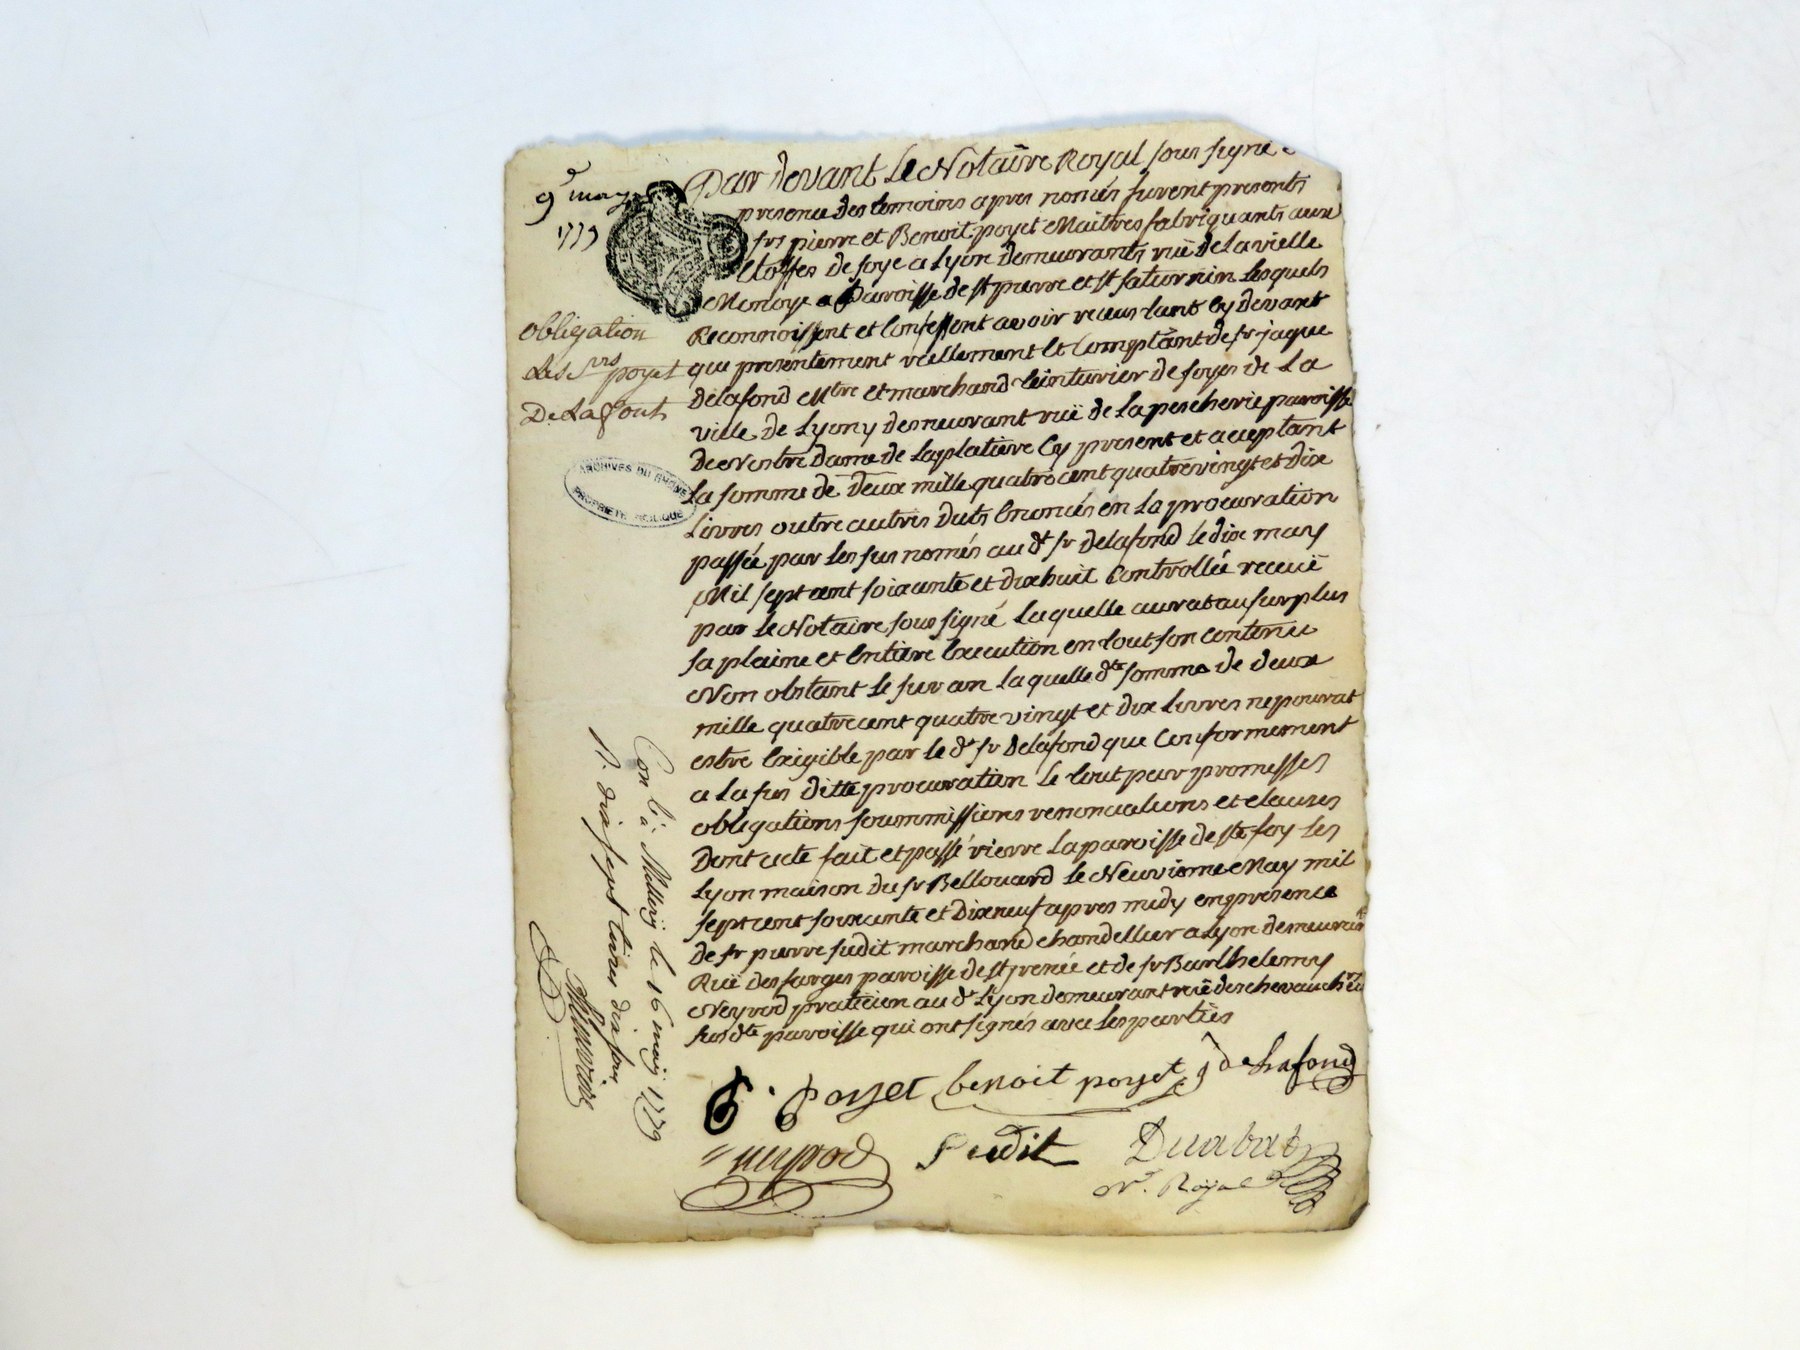 9e may
1779
obligation
des Srs poyet
De Lafont
ARCHIVES DU RHONE
PROPRIETE PUBLIQUE
Par devant Le Notaire Royal sous signé e
presence des temoins apres nonmés furent presents
srs pierre et Benoit poyet Maitres fabriquants aux
Etoffes de soye a Lyon demeurants ruë de la vielle
Monoye Paroisse de st pierre et st saturnin lesquels
Reconnoissent et Confessent avoir receus tant cy devant
que presentement réellement et Comptant de sr jaque
Delafond Mtre et marchand teinturier de soyes de La
ville de Lyon y demeurant ruë de la pescherie paroisse
de Nostre Dame de Laplatiere Cy present et aceptant
La somme de Deux mille quatrocent quatrevingt et dix
Livres outre autres duts Enoncés en La procuration
passée par les sus només au dt sr Delafond le dix mars
Mil sept cent soixante et dixhuit Controllée receuë
par le Notaire sous signé Laquelle aurat au surplus
sa plaine et Entiere Execution en tout son contenu
Non obstant le suran Laquelle dte somme de deux
mille quatrecent quatre vingt et dix Livres ne pourat
estre Exigible par le dt sr Delafond que Conformement
a La sus ditte procuration Le tout par promesses
obligations soummissions renonciations et clauses
Dont acte fait et passé rierre La paroisse de ste foy Les
Lyon maison du sr Bellouard le Neuvieme May mil
sept cent soixante et Dixneuf apres midy en presence
de sr pierre sudit marchand chandellier a Lyon demeurant
Ruë des farges paroisse de st jrenée et de sr Barthelemy
Neyrod praticien au dt Lyon demeurant ruë des chevaucheurs
sus dte paroisse qui ont signés avec les parties
P. Poyet benoit poyet j delafond
neyrod sudit
Nre. Royal
Con lé à Millery le 16 may 1779
R. dix sept livres dix sous